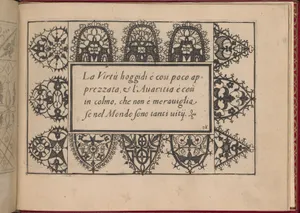 La Virtù hoggidì è cosi poco ap-
prezzata, & l'Auaritia è così
in colmo, che non è merauiglia,
se nel Mondo sono tanti uitÿ.